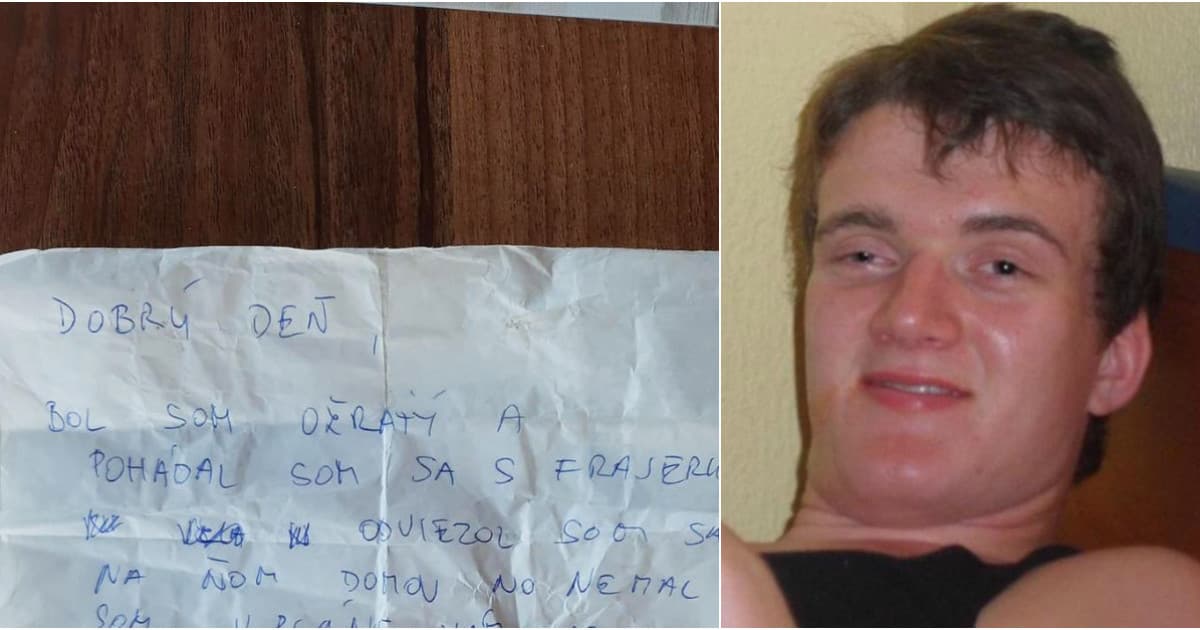 DOBRÝ DEŇ,
BOL SOM OŽRATÝ A
POHÁDAL SOM SA S
ODVIEZOL SOM SA
NA ŇOM DOMOV NO NEMAL
SOM V PLÁNE